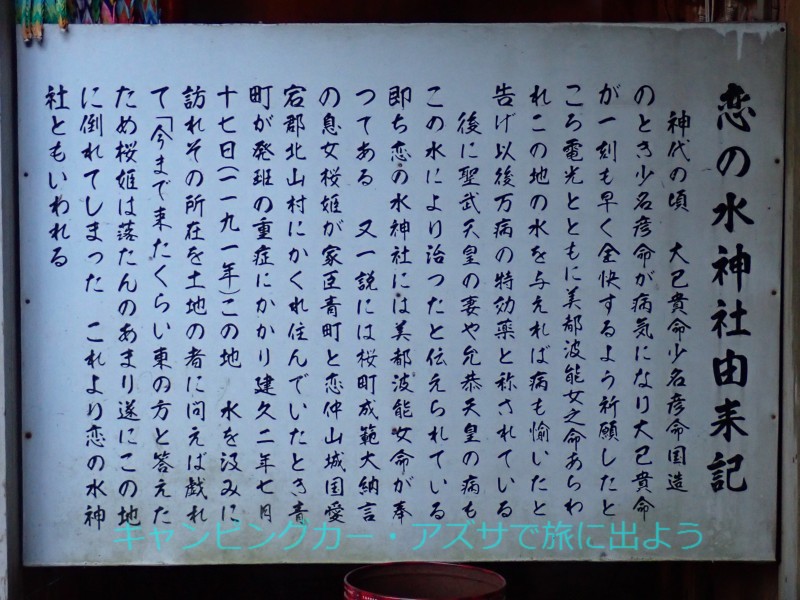 恋の水神社由来記
神代の頃　大己貴命少名彦命国造
のとき少名彦命が病気になり大己貴命
が一刻も早く全快するよう祈願したと
ころ電光とともに美都波能女之命あらわ
れこの地の水を与えれば病も愉いたと
告げ以後万病の特効薬と称されている
後に聖武天皇の妻や允恭天皇の病も
この水により治つたと伝えられている
即ち恋の水神社には美都波能女命が奉
つてある　又一説には桜町成範大納言
の息女桜姫が家臣青町と恋仲山城国愛
宕郡北山村にかくれ住んでいたとき青
町が発班の重症にかかり建久二年七月
十七日(一一九一年)この地　水を汲みに
訪れその所在を土地の者に問えば戯れ
て「今まで来たくらい東の方と答えた
ため桜姫は落たんのあまり遂にこの地
に倒れてしまった　これより恋の水神
社ともいわれる
キャンピングカー・アズサで旅に出よう